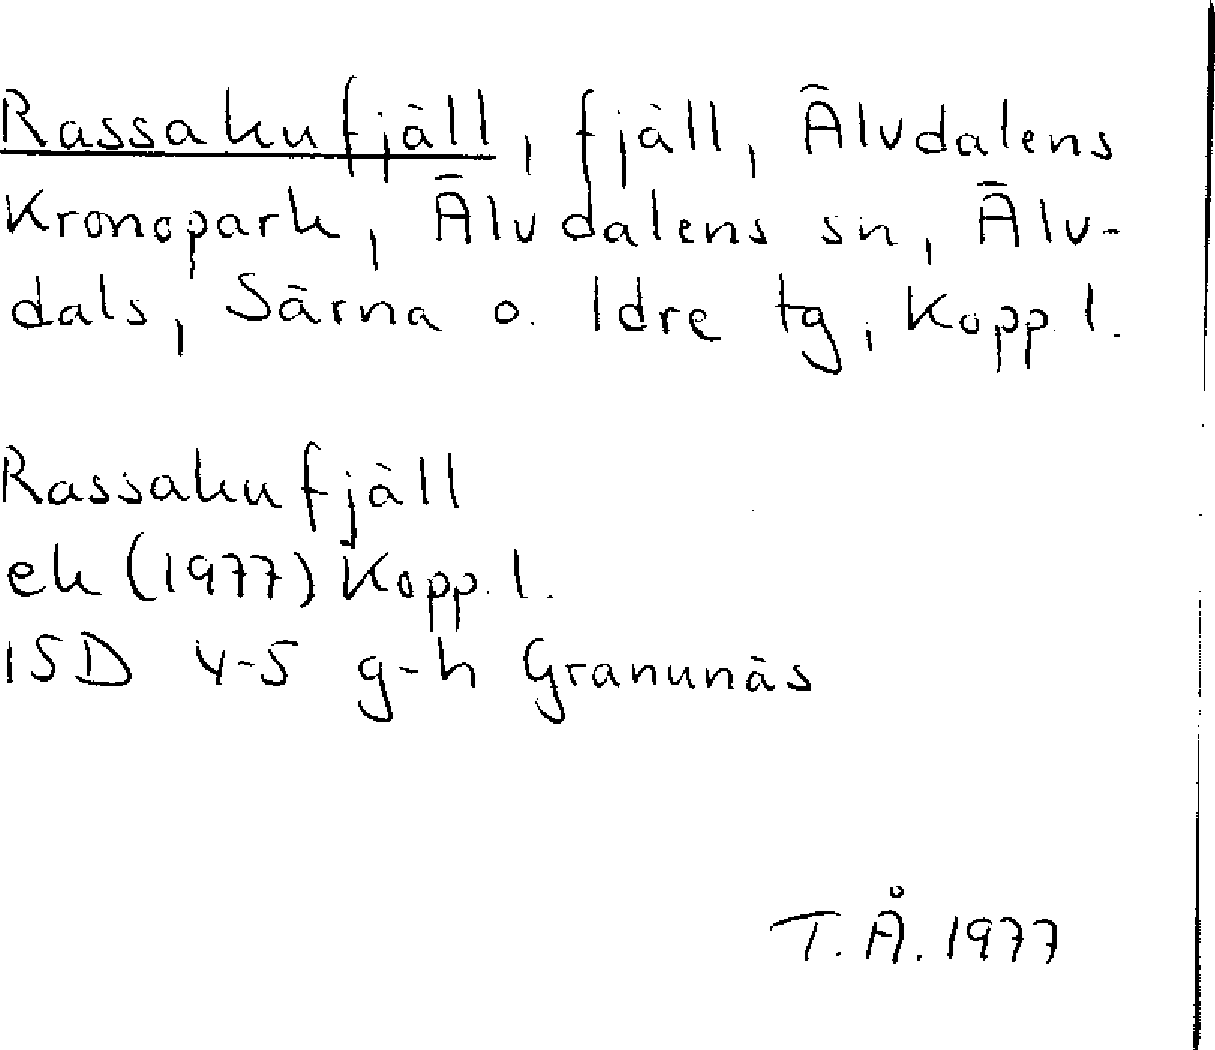 Rassakufjäll, fjäll, Älvdalens
Kronopark, Älvdalens sn, Älv-
dals, Särna o. Idre tg, Kopp l.
Rassakufjäll
ek (1977) Kopp. l.
15D 4-5 g-h Granunäs
T. Å. 1977